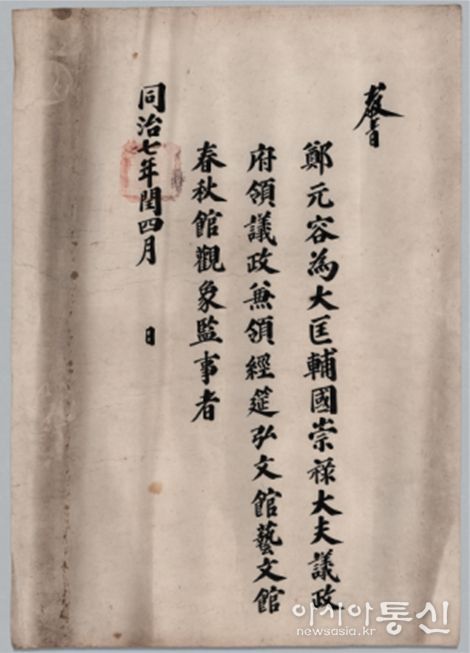 敎旨
鄭元容爲大匡輔國崇祿大夫議政
府領議政兼領經筵弘文館藝文館
春秋館觀象監事者
同治七年閏四月 日
아시아통신
newsasia.kr